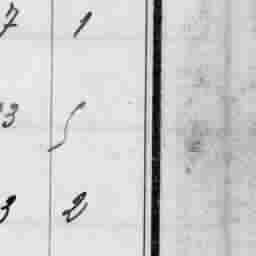 7 1
3 5
3 2